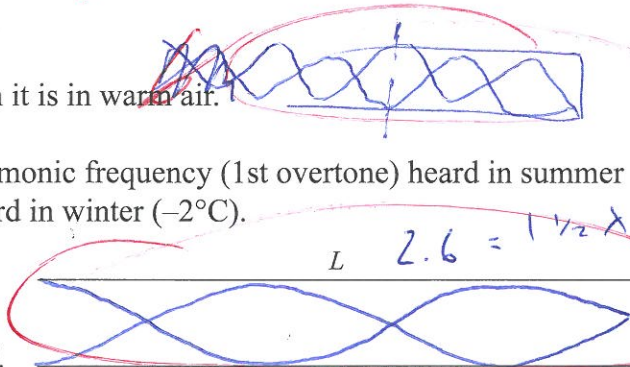 it is in warm air.
monic frequency (1st overtone) heard in summer
rd in winter (–2°C).
L 2.6 = 1 ½ λ